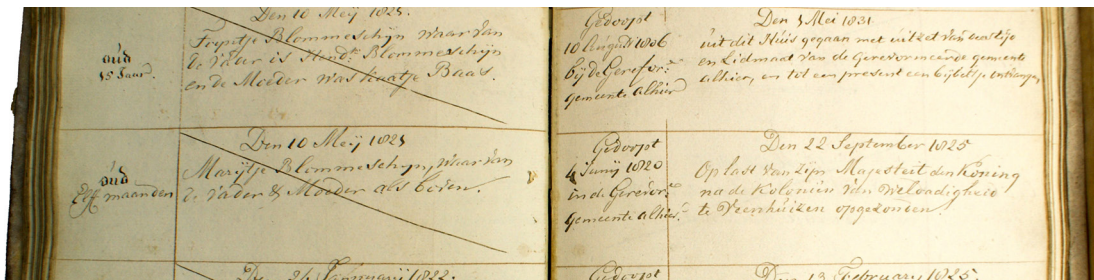 Den 10 Meij 1821.
oud
15 Jaar.
Foppitje Blommeschijn waar van
de Vader is Hend:k Blommeschijn
en de Moeder was Knaatje Baas.
Gedoopt
10 Augusti 1806
bij de Gerefor:
gemeente alhier
Den 3 Mei 1831.
uit dit Huis gegaan met uitzet van beestije
en Lidmaat van de Gereformeerde gemeente
alhier, en tot een present een bijbeltje ontvangen
Den 10 Meij 1821
oud
Elf maanden
Marijtje Blommeschijn, waar van
de Vader & Moeder als boven.
Gedoopt
4 Junij 1820
in de Gerefor:
gemeente alhier.
Den 22 September 1825
Op last van Zijn Majesteit den Koning
na de Kolonien van Weldadigheid
te Veenhuizen opgezonden.
Den 26 Januarij 1822.
Gedoopt
Den 13 Februarij 1825.